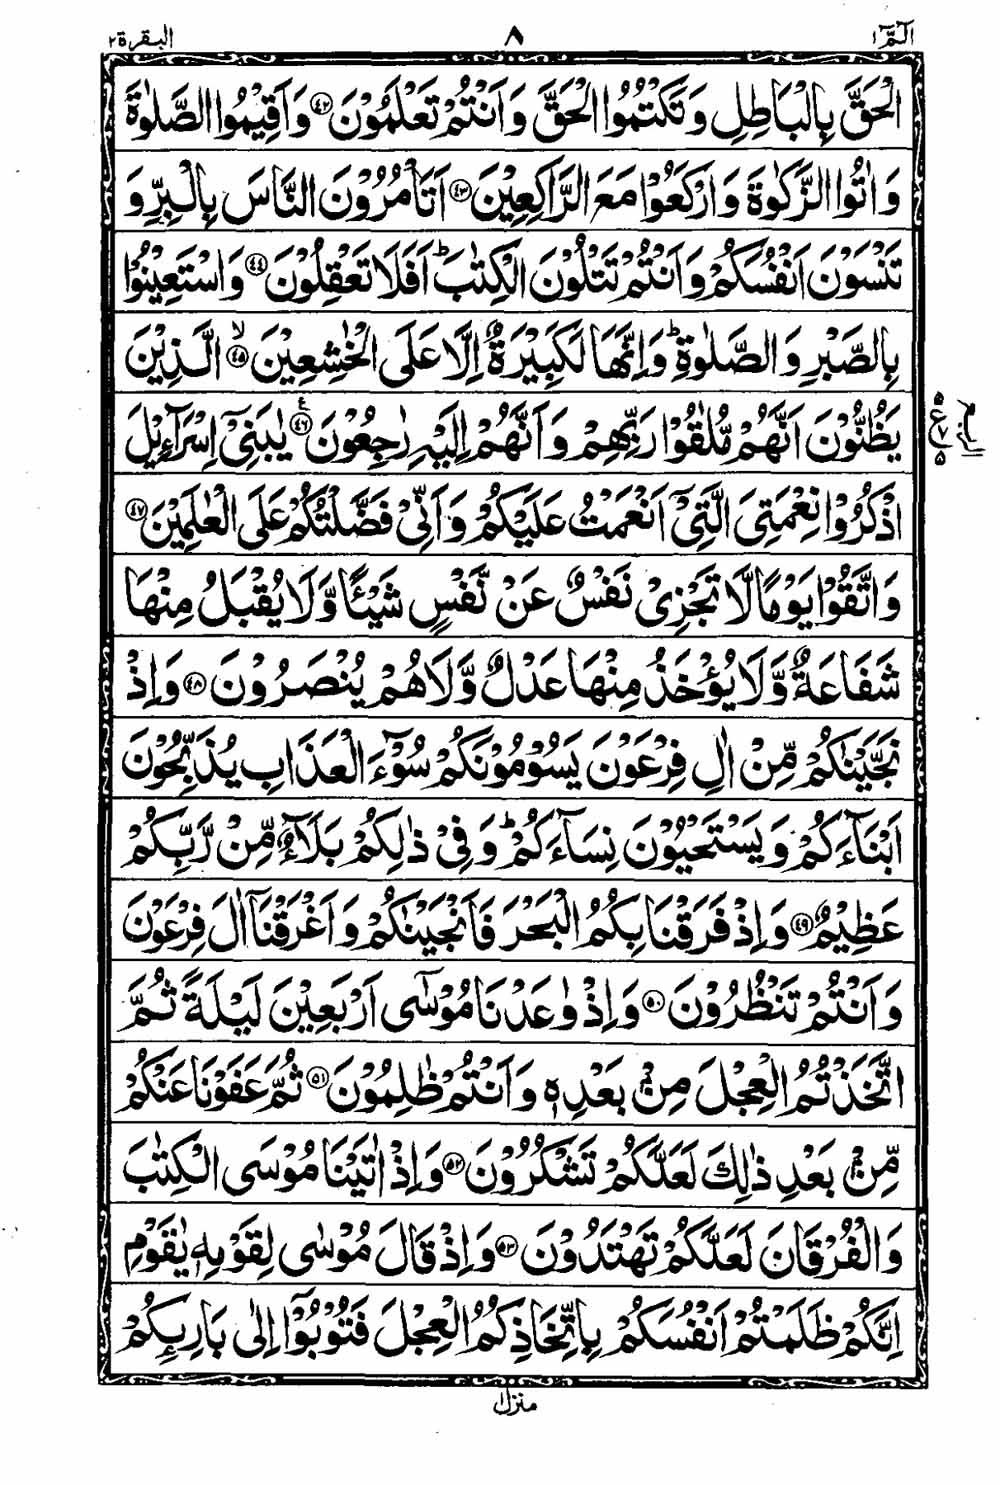 الٓمّٓ ١
٨
البقرة ٢
الْحَقَّ بِالْبَاطِلِ وَتَكْتُمُوا الْحَقَّ وَاَنْتُمْ تَعْلَمُوْنَ ﴿۴۲﴾ وَاَقِيْمُوا الصَّلٰوةَ
وَاٰتُوا الزَّكٰوةَ وَارْكَعُوْا مَعَ الرّٰكِعِيْنَ ﴿۴۳﴾ اَتَاْمُرُوْنَ النَّاسَ بِالْبِرِّ وَ
تَنْسَوْنَ اَنْفُسَكُمْ وَاَنْتُمْ تَتْلُوْنَ الْكِتٰبَ ؕ اَفَلَا تَعْقِلُوْنَ ﴿۴۴﴾ وَاسْتَعِيْنُوْا
بِالصَّبْرِ وَالصَّلٰوةِ ؕ وَاِنَّهَا لَكَبِيْرَةٌ اِلَّا عَلَى الْخٰشِعِيْنَ ﴿۴۵﴾ۙ الَّذِيْنَ
يَظُنُّوْنَ اَنَّهُمْ مُّلٰقُوْا رَبِّهِمْ وَاَنَّهُمْ اِلَيْهِ رٰجِعُوْنَ ﴿۴۶﴾ع يٰبَنِيْٓ اِسْرَآءِيْلَ
اذْكُرُوْا نِعْمَتِيَ الَّتِيْٓ اَنْعَمْتُ عَلَيْكُمْ وَاَنِّيْ فَضَّلْتُكُمْ عَلَى الْعٰلَمِيْنَ ﴿۴۷﴾
وَاتَّقُوْا يَوْمًا لَّا تَجْزِيْ نَفْسٌ عَنْ نَّفْسٍ شَيْـًٔا وَّلَا يُقْبَلُ مِنْهَا
شَفَاعَةٌ وَّلَا يُؤْخَذُ مِنْهَا عَدْلٌ وَّلَا هُمْ يُنْصَرُوْنَ ﴿۴۸﴾ وَاِذْ
نَجَّيْنٰكُمْ مِّنْ اٰلِ فِرْعَوْنَ يَسُوْمُوْنَكُمْ سُوْٓءَ الْعَذَابِ يُذَبِّحُوْنَ
اَبْنَآءَكُمْ وَيَسْتَحْيُوْنَ نِسَآءَكُمْ ؕ وَفِيْ ذٰلِكُمْ بَلَآءٌ مِّنْ رَّبِّكُمْ
عَظِيْمٌ ﴿۴۹﴾ وَاِذْ فَرَقْنَا بِكُمُ الْبَحْرَ فَاَنْجَيْنٰكُمْ وَاَغْرَقْنَآ اٰلَ فِرْعَوْنَ
وَاَنْتُمْ تَنْظُرُوْنَ ﴿۵۰﴾ وَاِذْ وٰعَدْنَا مُوْسٰٓى اَرْبَعِيْنَ لَيْلَةً ثُمَّ
اتَّخَذْتُمُ الْعِجْلَ مِنْۢ بَعْدِهٖ وَاَنْتُمْ ظٰلِمُوْنَ ﴿۵۱﴾ ثُمَّ عَفَوْنَا عَنْكُمْ
مِّنْۢ بَعْدِ ذٰلِكَ لَعَلَّكُمْ تَشْكُرُوْنَ ﴿۵۲﴾ وَاِذْ اٰتَيْنَا مُوْسَى الْكِتٰبَ
وَالْفُرْقَانَ لَعَلَّكُمْ تَهْتَدُوْنَ ﴿۵۳﴾ وَاِذْ قَالَ مُوْسٰى لِقَوْمِهٖ يٰقَوْمِ
اِنَّكُمْ ظَلَمْتُمْ اَنْفُسَكُمْ بِاتِّخَاذِكُمُ الْعِجْلَ فَتُوْبُوْٓا اِلٰى بَارِىِٕكُمْ
منزل ١